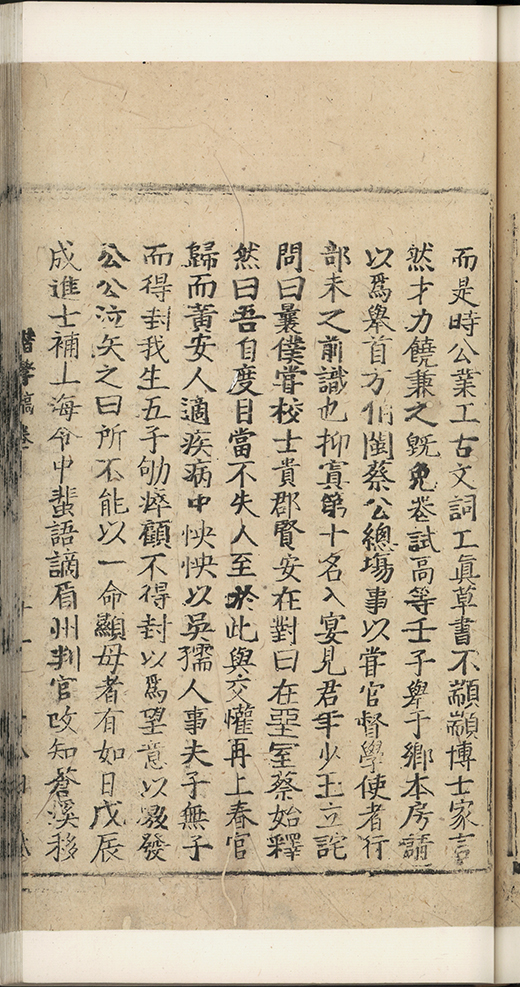 而是時公業工古文詞工眞草書不顓顓博士家言
然才力饒兼之旣免卷試高等壬子舉于鄉本房請
以爲舉首方伯閩蔡公總塲事以甞官督學使者行
部未之前識也抑寘第十名入宴見君年少玉立詫
問曰曩僕甞校士貴郡賢安在對曰在堊室蔡始釋
然曰吾自度目當不失人至於此與交懽再上春官
歸而黃安人適疾病中怏怏以吳孺人事夫子無子
而得封我生五子劬瘁顧不得封以爲望意以數發
公公泣矢之曰所不能以一命顯母者有如日戊辰
成進士補上海令中蜚語謫眉州判官攺知蒼溪移
稿卷